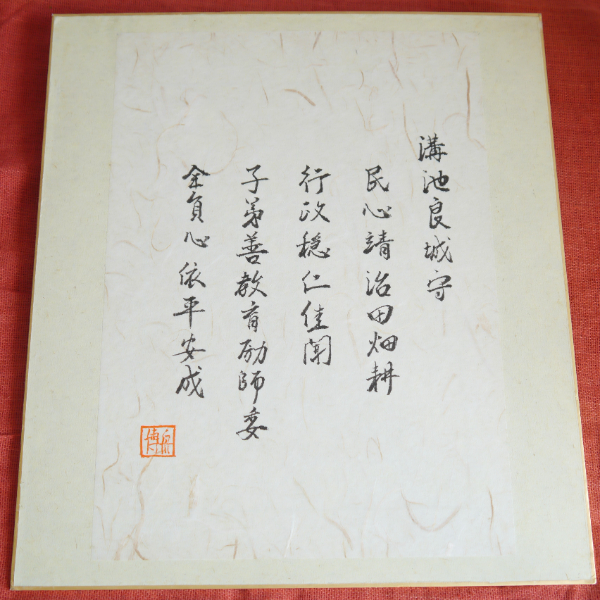 溝池良城守
民心靖治田畑耕
行政穏仁佳聞
子弟善教育励師委
全員心依平安成